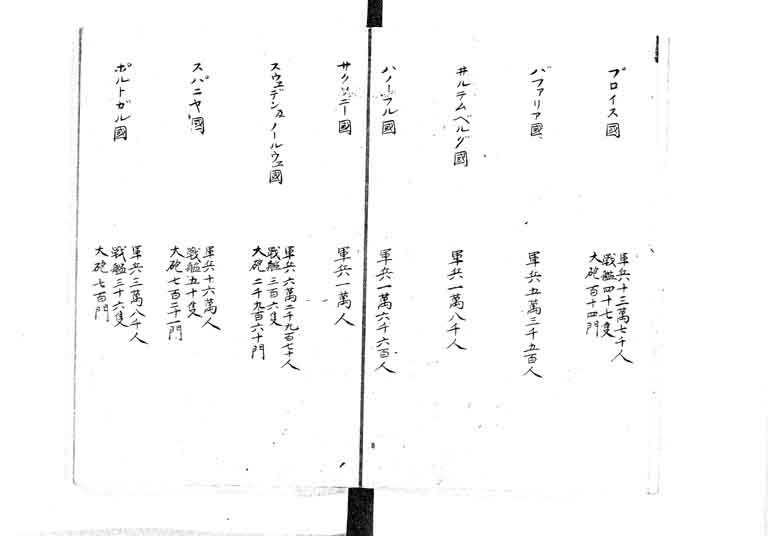 プロイス國
軍兵十三萬七千人
戦艦四十七隻
大砲百十四門
バファリア國
軍兵五萬三千五百人
ヰルテムベルグ國
軍兵一萬八千人
ハノーフル國
軍兵一萬六千六百人
サクソニー國
軍兵一萬人
スウェデン及ノールウェ國
軍兵六萬二千九百七十人
戦艦三百六隻
大砲二千九百六十門
スパニヤ國
軍兵十六萬人
戦艦五十隻
大砲七百二十一門
ポルトガル國
軍兵三萬八千人
戦艦三十六隻
大砲七百門